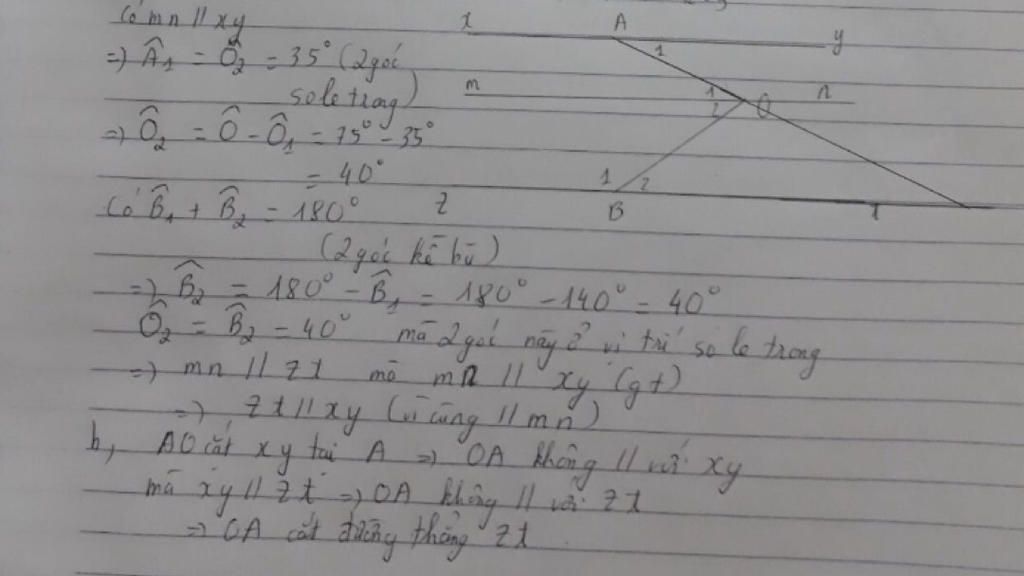 Có mn // xy
=) Â1 = Ô2 = 35° (2 góc
so le trong)
=) Ô2 = Ô - Ô1 = 75° - 35°
= 40°
Có B̂1 + B̂2 = 180°
(2 góc kề bù)
=) B̂2 = 180° - B̂1 = 180° - 140° = 40°
Ô2 = B̂2 = 40° mà 2 góc này ở vị trí so le trong
=) mn // zt mà mn // xy (gt)
=) zt // xy (vì cùng // mn)
b, AO cắt xy tại A => OA không // với xy
mà xy // zt => OA không // với zt
=> OA cắt đường thẳng zt
x A y
1
m 1 n
2 O
1 2
z B 1